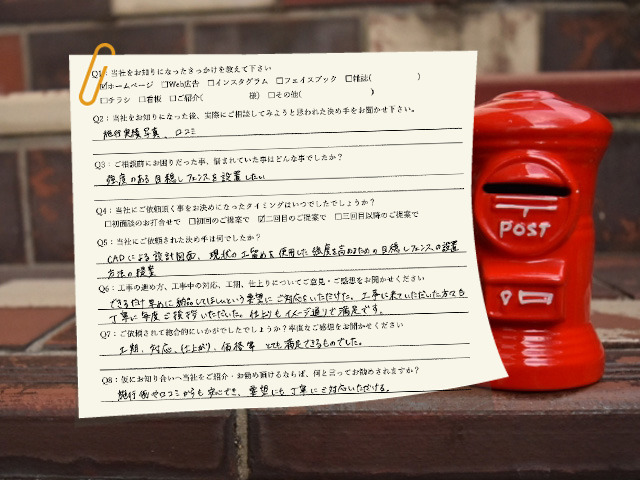 Q1：当社をお知りになったきっかけを教えて下さい
☑ホームページ □Web広告 □インスタグラム □フェイスブック □雑誌( )
□チラシ □看板 □ご紹介( 様) □その他( )
Q2：当社をお知りになった後、実際にご相談してみようと思われた決め手をお聞かせ下さい。
施行実績写真、口コミ
Q3：ご相談前にお困りだった事、悩まれていた事はどんな事でしたか？
強度のある目隠しフェンスを設置したい
Q4：当社にご依頼頂く事をお決めになったタイミングはいつでしたでしょうか？
□初面談のお打合せで □初回のご提案で ☑二回目のご提案で □三回目以降のご提案で
Q5：当社にご依頼された決め手は何でしたか？
CADによる設計図面、現状の土留めを使用した強度を高めるための目隠しフェンスの設置
方法の提案
Q6：工事の進め方、工事中の対応、工期、仕上りについてご意見・ご感想をお聞かせください
できるだけ早めに納品してほしいという要望にご対応をいただけた。工事に来ていただいた方々も
丁寧に毎度ご挨拶いただいた。仕上りもイメージ通りで満足です。
Q7：ご依頼されて総合的にいかがでしたでしょうか？率直なご感想をお聞かせください
工期、対応、仕上がり、価格等 とても満足できるものでした。
Q8：仮にお知り合いへ当社をご紹介・お勧め頂けるならば、何と言ってお勧めされますか？
施行例や口コミからも安心でき、要望にも丁寧にご対応いただける。
POST